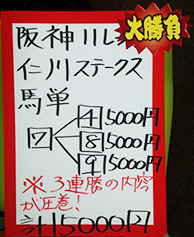 大勝負
阪神11レ
仁川ステークス
馬単
④5000円
⑦⑧5000円
⑨5000円
※3連勝の内容
が圧巻!
計15000円